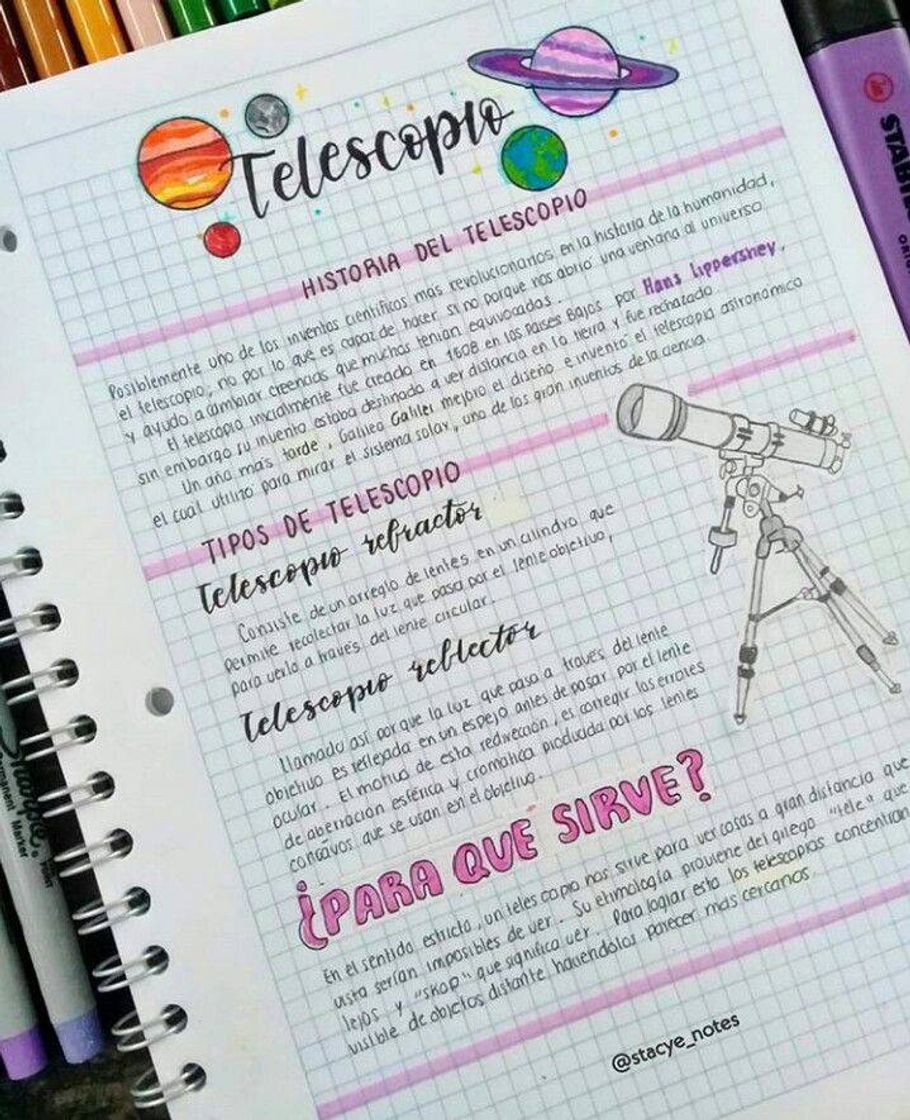 Telescopio
HISTORIA DEL TELESCOPIO
Posiblemente uno de los inventos científicos más revolucionarios en la historia de la humanidad,
el telescopio, no por lo que es capaz de hacer si no porque nos abrió una ventana al universo
y ayudo a cambiar creencias que muchos tenían equivocadas.
El telescopio inicialmente fue creado en 1608 en los Países Bajos por Hans Lippershey,
sin embargo su invento estaba destinado a ver distancia en la tierra y fue rechazado
Un año más tarde, Galileo Galilei mejoro el diseño e inventó el telescopio astronómico
el cual utilizo para mirar el sistema solar, uno de los gran inventos de la ciencia
TIPOS DE TELESCOPIO
Telescopio refractor
Consiste de un arreglo de lentes en un cilindro que
permite recolectar la luz que pasa por el lente objetivo,
para verla a través del lente circular.
Telescopio reflector
Llamado así porque la luz que pasa a través del lente
objetivo es reflejada en un espejo antes de pasar por el lente
ocular. El motivo de esta redirección, es corregir los errores
de aberración esférica y cromática producida por los lentes
concavos que se usan en el objetivo.
¿PARA QUÉ SIRVE?
En el sentido estricto, un telescopio nos sirve para ver cosas a gran distancia que
vista serían imposibles de ver. Su etimología proviene del griego "tele" que
lejos y "skop" que significa ver. Para lograr esto los telescopios concentran
visible de objetos distante haciendolos parecer más cercanos.
@stacye_notes
STABIL
ORIG
Sharpie
Permanent Marker
Point